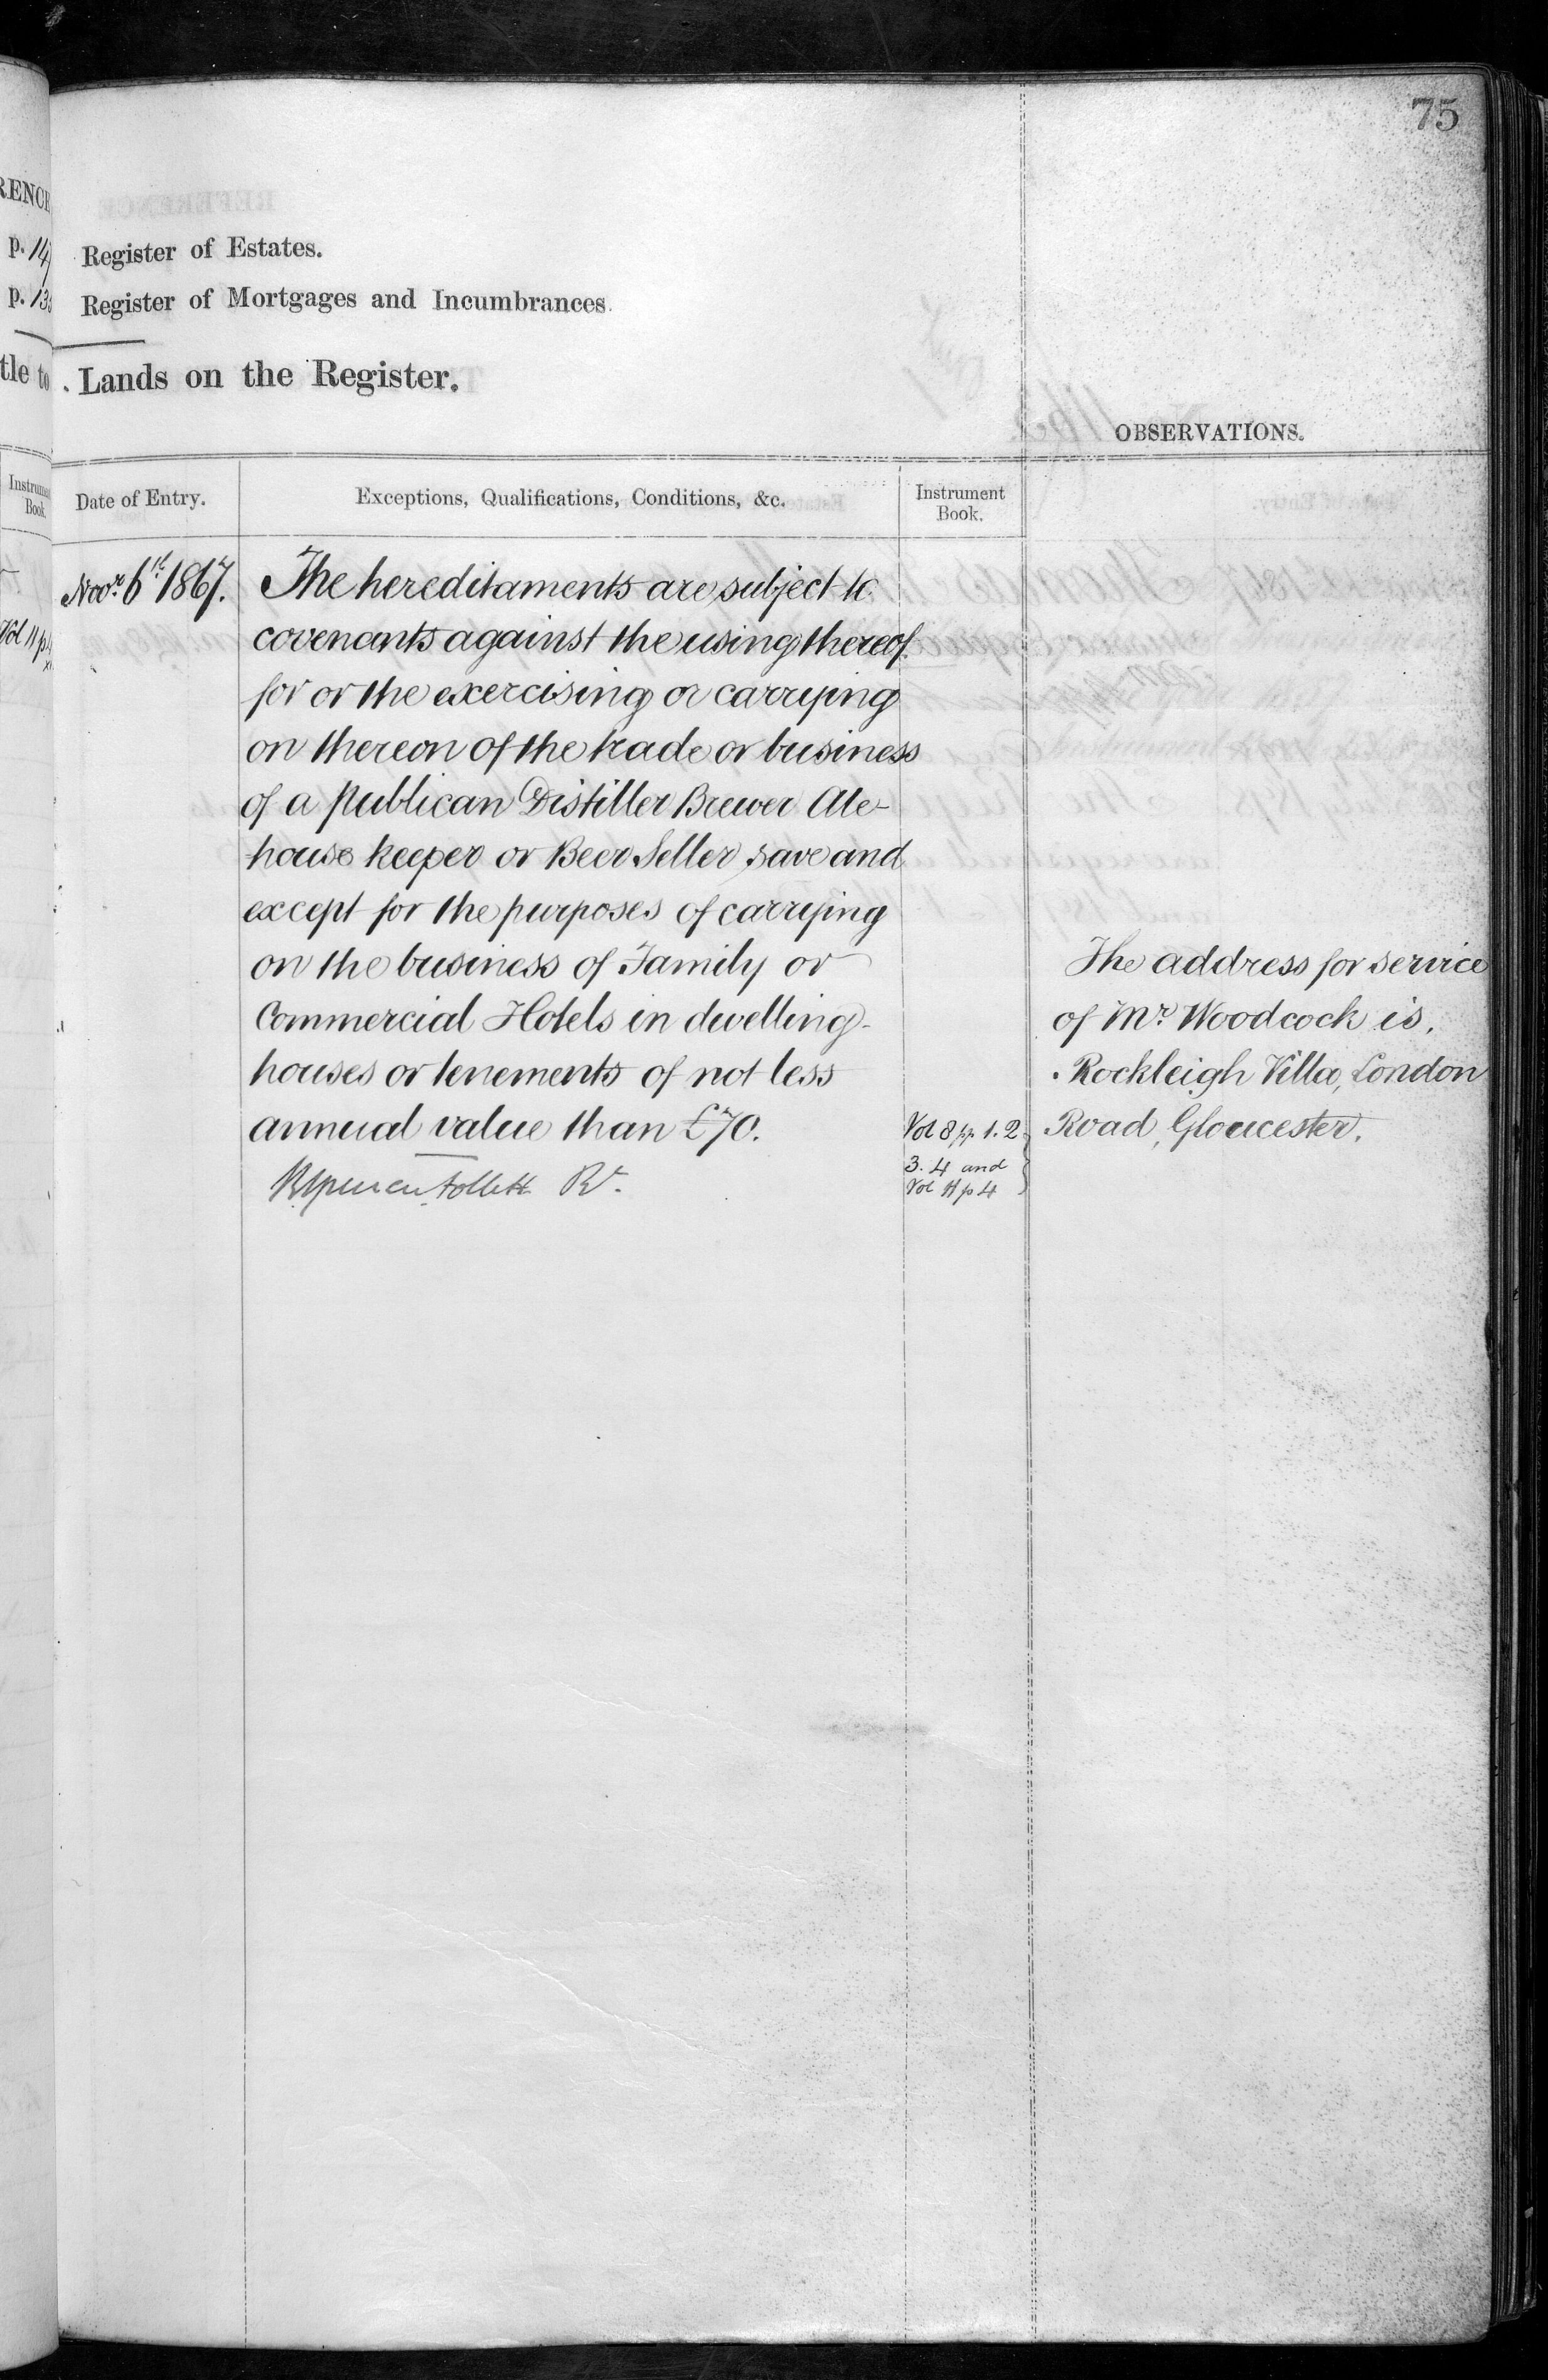 75
RENCE
p. 14
p. 13
tle to
Instrument
Book.
Vol 11 p
Register of Estates.
Register of Mortgages and Incumbrances.
Lands on the Register.
OBSERVATIONS.
Date of Entry.
Exceptions, Qualifications, Conditions, &c.
Instrument
Book.
Novr. 6th 1867.
The hereditaments are subject to
covenants against the using thereof
for or the exercising or carrying
on thereon of the trade or business
of a publican Distiller Brewer Ale-
house keeper or Beer Seller save and
except for the purposes of carrying
on the business of Family or
Commercial Hotels in dwelling-
houses or tenements of not less
annual value than £70.
Follett Rr.
Vol 8 pp. 1. 2.
3. 4 and
Vol 11 p 4
The address for service
of Mr. Woodcock is,
Rockleigh Villa, London
Road, Gloucester.